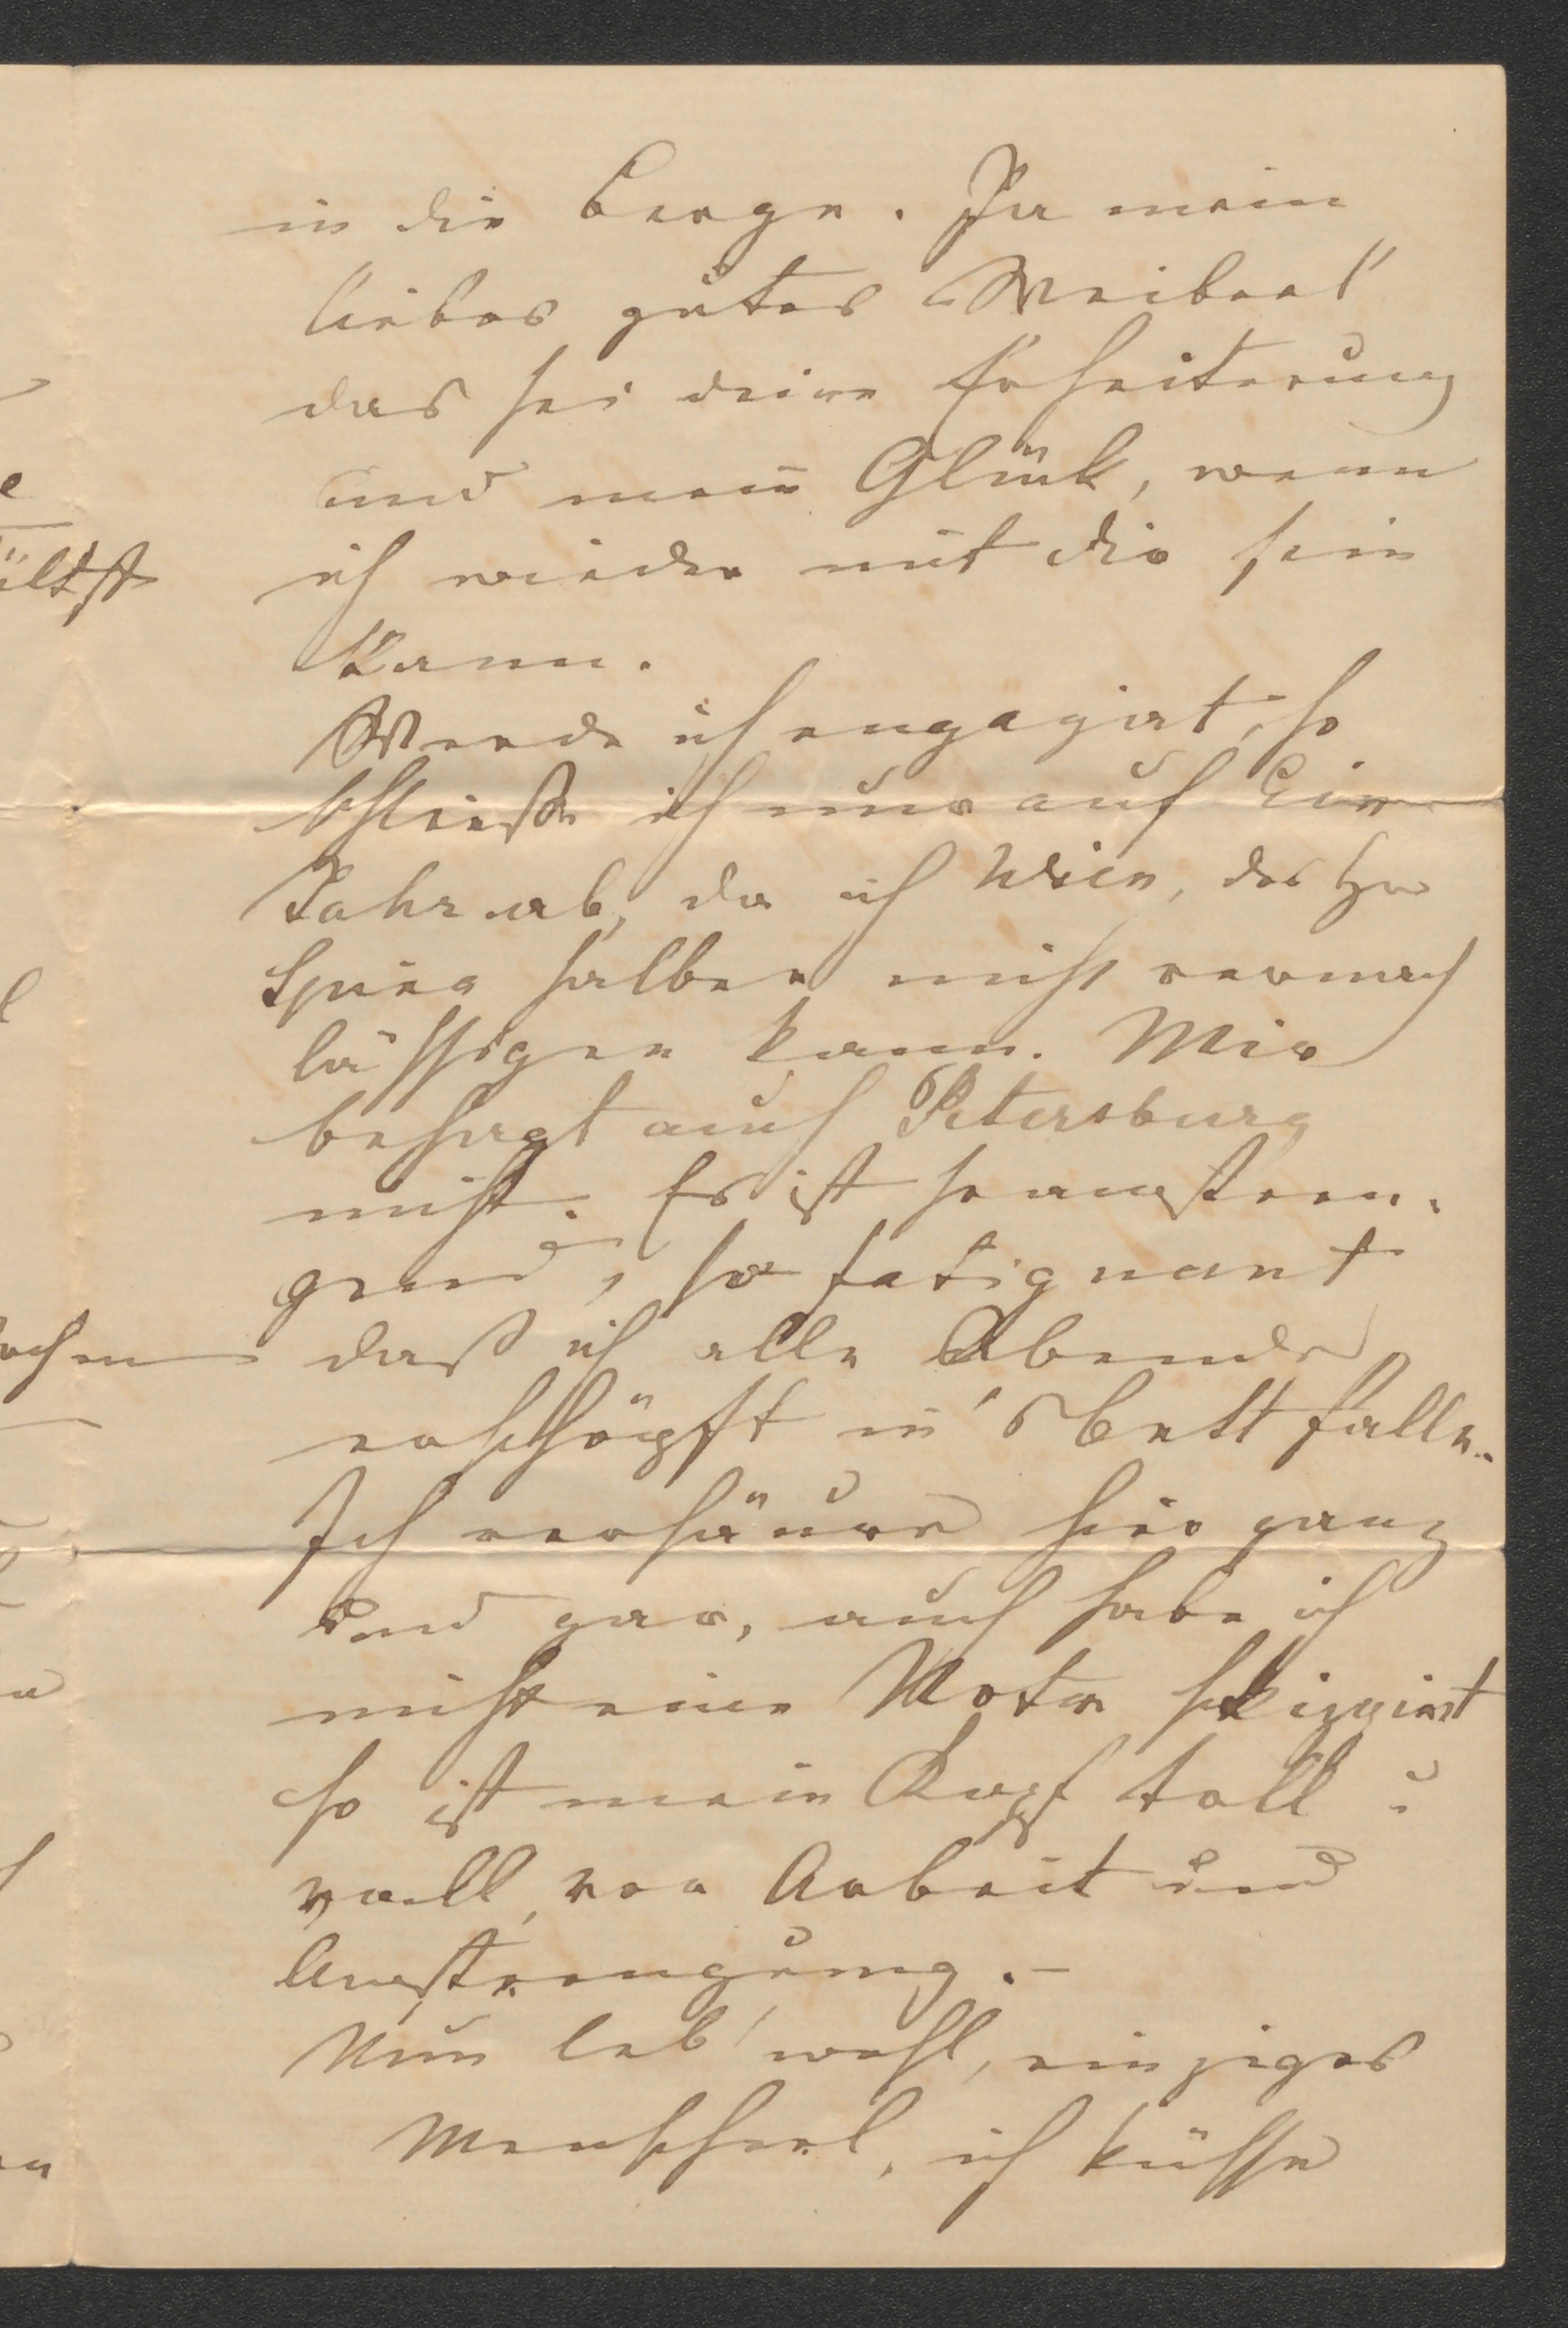 in die Berge. Ja mein
liebes gutes Weiberl
das sei deine Erheiterung
und mein Glük, wenn
ich wieder mit dir sein
kann.
Werde ich engagirt, so
schließe ich nur auf Ein
Jahr ab, da ich Wien, der
halber nicht vernach
lässigen kann. Mir
behagt auch Petersburg
nicht. Es ist so anstren-
gend, so fatignant
daß ich alle Abende
erschöpft in's Bett falle.
Ich versäure hier ganz
und gar, auch habe ich
nicht eine Note skizzirt
so ist mein Kopf toll u
voll, von Arbeit und
Anstrengung.–
Nun leb' wohl, einziges
Menscherl, ich küsse